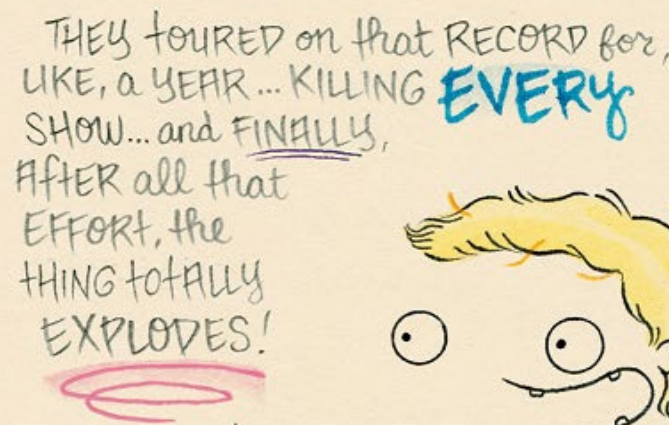 THEY toURED on that RECORD for,
LIKE, a YEAR... KILLING EVERY
SHOW... and FINALLY,
AFtER all that
EFFORt, the
tHING totALLY
EXPLODES!